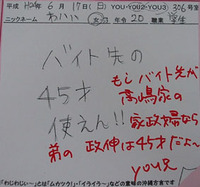 平成 年 6月 17日(日) YOU・YOU2・YOU3) 306号室
ニックネーム わいいい 女 年令 20 職業 学生
バイト先の
45才
使えん!!
もしバイト先が
高嶋家の
家政婦なら
弟の政伸は45才だよ〜
you2
「わじわじぃ〜」とは「ムカつく!」・「イライラ〜」などの意味の沖縄方言です